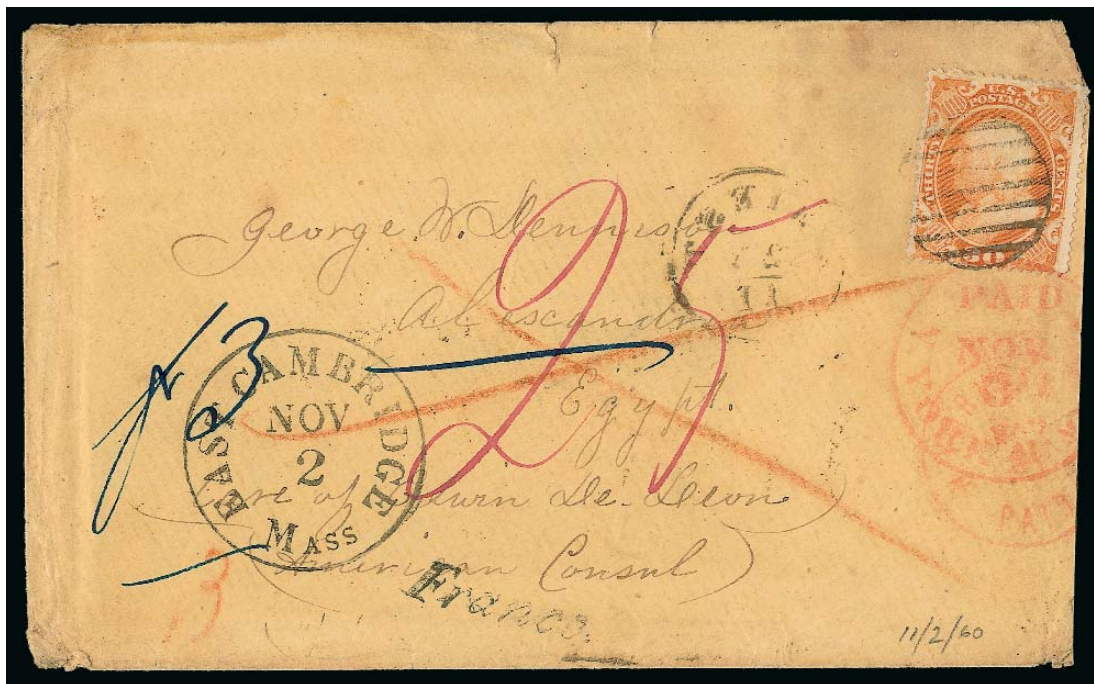 U.S.
POSTAGE
THIRTY
CENTS
George W. Dennison
Alescandria
Egypt.
Care of
De-Leon
(American Consul)
25
3
EAST CAMBRIDGE
NOV
2
MASS
PAID
NOV
PAID
Franco.
11/2/60